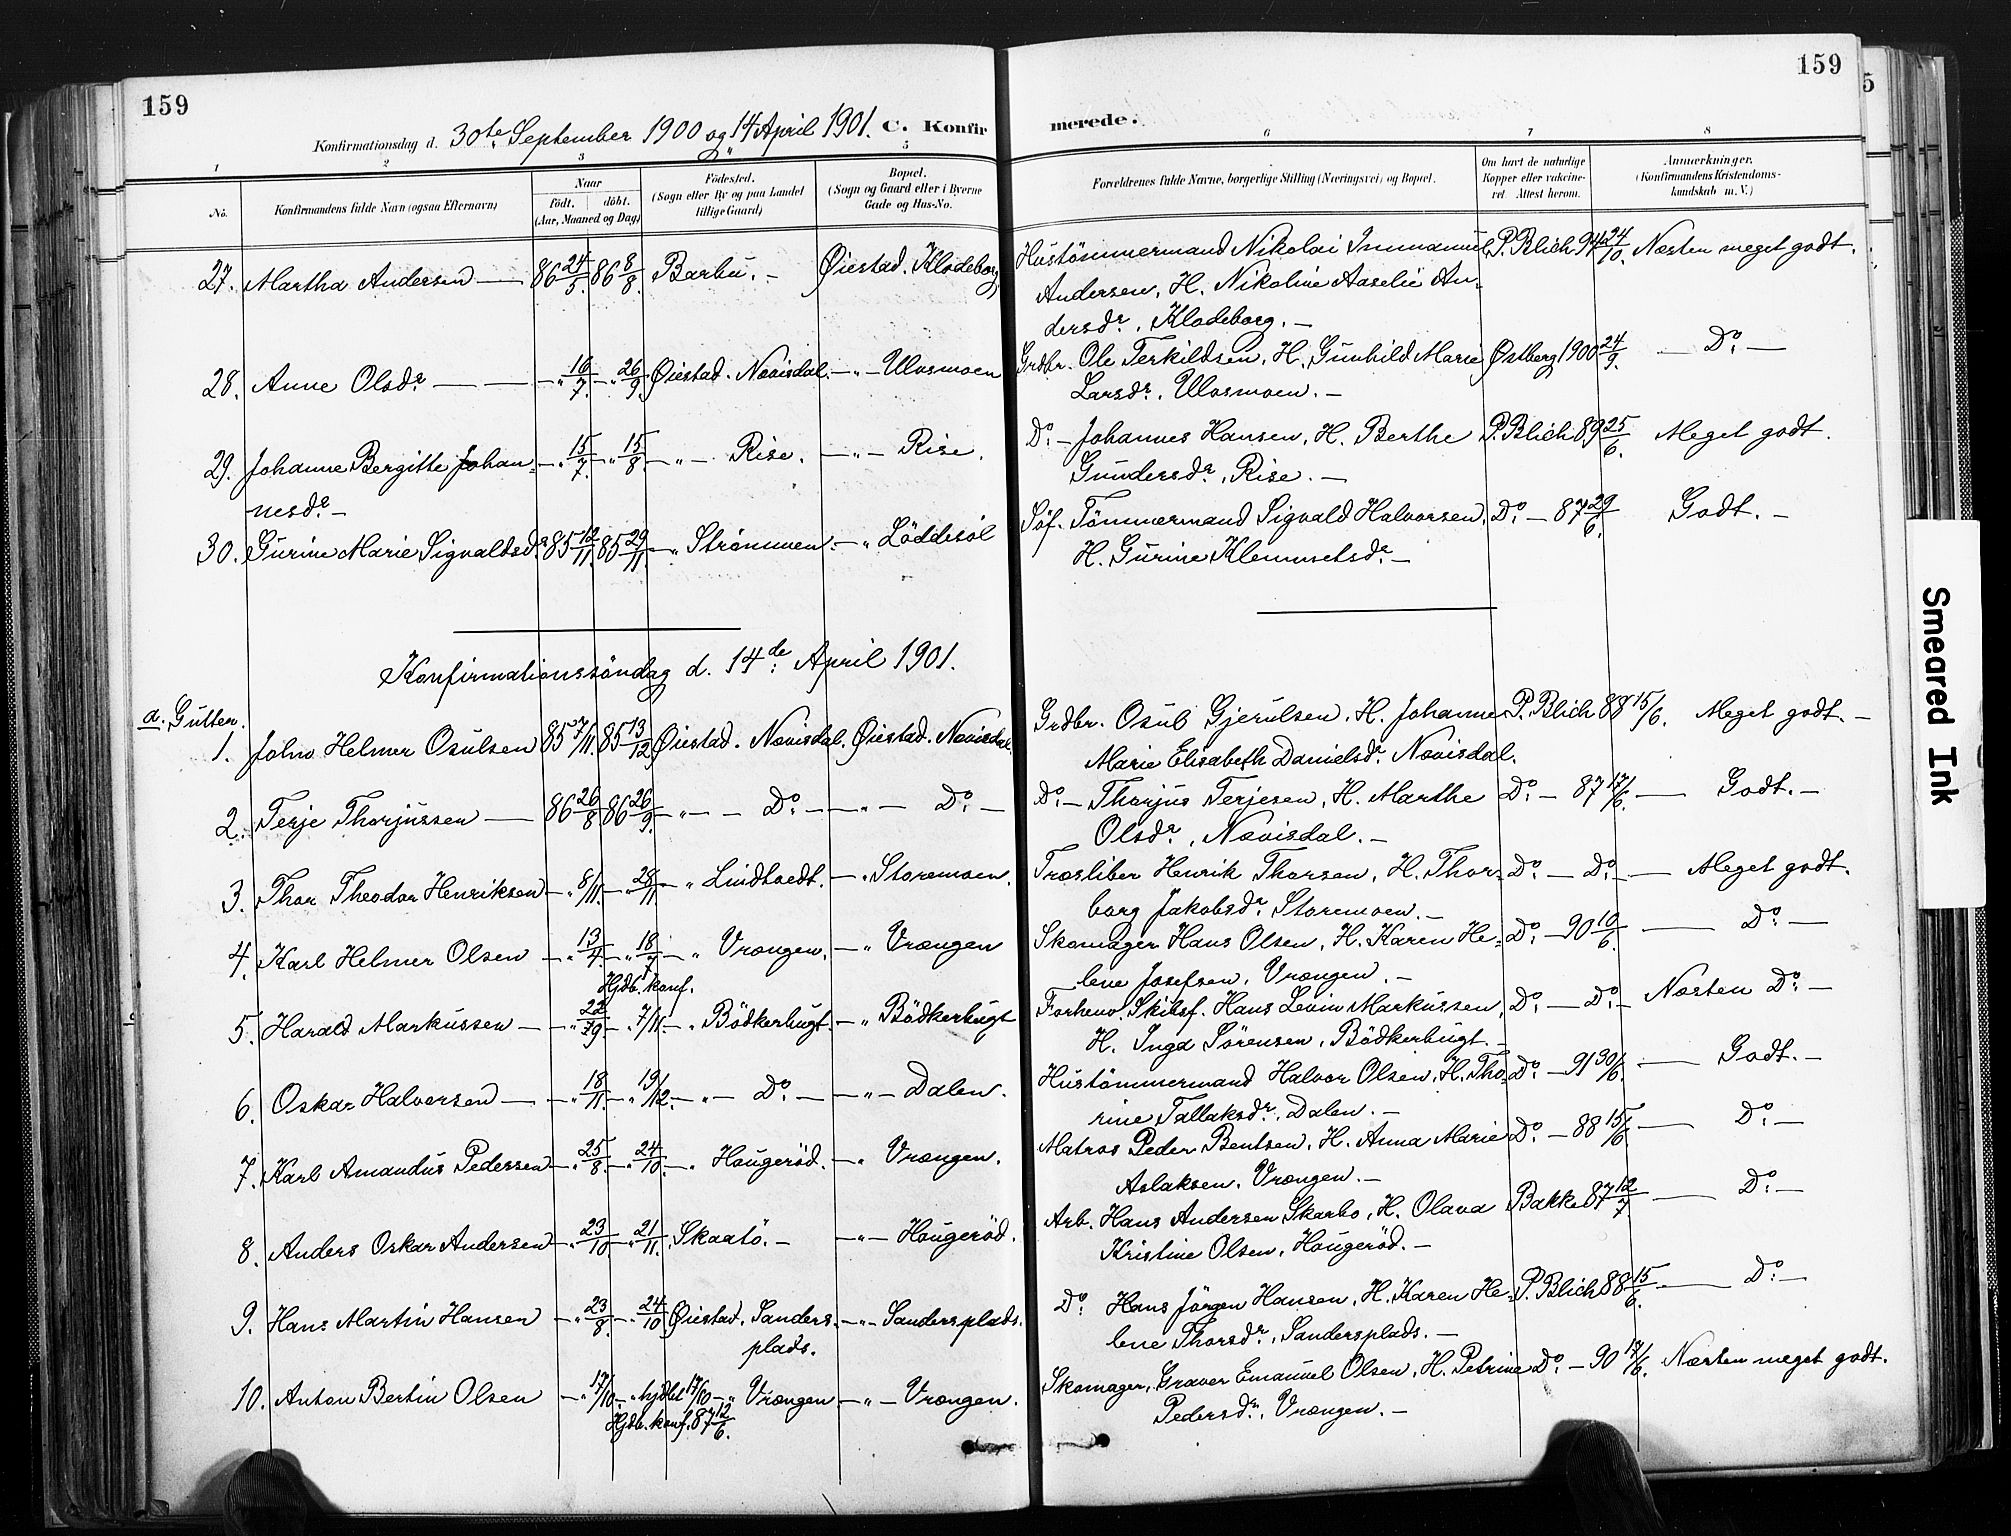 159
159
5
Konfirmationsdag d. 30te September 1900 og 14 April 1901. C. Konfir merede.
1 2 3 5 6 7 8
No. Konfirmandens fulde Navn (ogsaa Efternavn) Naar födt. döbt. (Aar, Maaned og Dag) Födested. (Sogn eller By og paa Landet tillige Gaard) Bopæl. (Sogn og Gaard eller i Byerne Gade og Hus-No. Forældrenes fulde Navne, borgerlige Stilling (Næringsvei) og Bopæl. Om havt de naturlige Kopper eller vakcineret. Attest herom. Anmerkninger. (Konfirmandens Kristendomskundskab m. V.)
27. Martha Andersen — 86 24/5 86 8/8 Barbu. - Øiestad. Klodeborg Hustömmermand Nikolai Immanuel P. Blich 94 24/10. Næsten meget godt.
Andersen, H. Nikoline Aaselie An-
dersdr., Klodeborg. -
28. Anne Olsdr. — - " 16/7. - " 26/9. Øiestad. Nævisdal. - " - Ulvsmoen Grdbr. Ole Terkildsen, H. Gunhild Marie Østberg 1900 24/9. — Do. -
Larsdr., Ulvsmoen. -
29. Johanne Bergitte Johan- - " 15/7. - " 15/8 - " - Rise. - " - Rise. Do. - Johannes Hansen, H. Berthe P. Blich 89 25/6. Meget godt.
nesdr. - Gundersdr., Rise. -
30. Gurine Marie Sigvaldsdr. 85 12/11. 85 29/11. - " Strömmen. - " Löddesöl Söf. Tömmermand Sigvald Halvorsen, Do. - 87 29/6. Godt. -
H. Gurine Klemmetsdr. -
Konfirmationssöndag d. 14de April 1901.
a. Gutter.
1. John Helmer Osulsen 85 7/11. 85 13/12 Øiestad. Nævisdal. Øiestad. Nævisdal. Grdbr. Osul Gjerulsen, H. Johanne P. Blich 88 15/6. Meget godt. -
Marie Elisabeth Danielsdr. Nævisdal.
2. Terje Thorjussen — 86 26/8 86 26/9. - " - - Do. - - " - Do. - Do. - Thorjus Terjesen, H. Marthe Do. - 87 17/6. — Godt. -
Olsdr., Nævisdal. -
3. Thor Theodor Henriksen - " 8/11. - " 28/11 - " Lindtvedt. - " Storemoen. Træsliber Henrik Thorsen, H. Thor- Do. - Do. - — Meget godt.
borg Jakobsdr. Storemoen. -
4. Karl Helmer Olsen - " 13/4. - " 18/7 - " Vrængen. - " Vrængen Skomager Hans Olsen, H. Karen He- Do. - 90 10/6. — Do. -
Hjdb. konf. lene Josefsen, Vrængen. -
5. Harald Markussen - - " 22/9 - " 7/11. - " Bödkerbugt. - " Bödkerbugt Forhenv. Skibsf. Hans Levin Markussen, Do. - Do. - Næsten Do. -
H. Inga Sörensen, Bödkerbugt. -
6. Oskar Halvorsen — - " 18/11. - " 19/12. - " - Do. - - " - Dalen. Hustömmermand Halvor Olsen, H. Tho- Do. - 91 30/6. — Godt. -
rine Tallaksdr., Dalen. -
7. Karl Amandus Pedersen - " 25/8. - " 24/10. - " Hougeröd. - " Vrængen. Matros Peder Bentsen, H. Anna Marie Do. - 88 15/6 — Do. -
Aslaksen, Vrængen. -
8. Anders Oskar Andersen - " 23/10 - " 21/11. Skaatö. - - " - Hougeröd. Arb. Hans Andersen Skarbo, H. Olava Bakke 87 12/7 — Do. -
Kristine Olsen, Hougeröd. -
9. Hans Martin Hansen - " 23/8. - " 24/10 Øiestad. Sanders- - " - Sandersplads. Do. Hans Jörgen Hansen, H. Karen He- P. Blich 88 15/6. — Do. -
plads. lene Thorsdr., Sandersplads. -
10. Anton Bertin Olsen - " 17/10. - " hjdbt 17/10 - " Vrængen - " - Vrængen. Skomager, Graver Emanuel Olsen, H. Petrine Do. - 90 17/6. Næsten meget godt.
Hjdb. konf. 87 12/6. Pedersdr., Vrængen. -
Smeared Ink